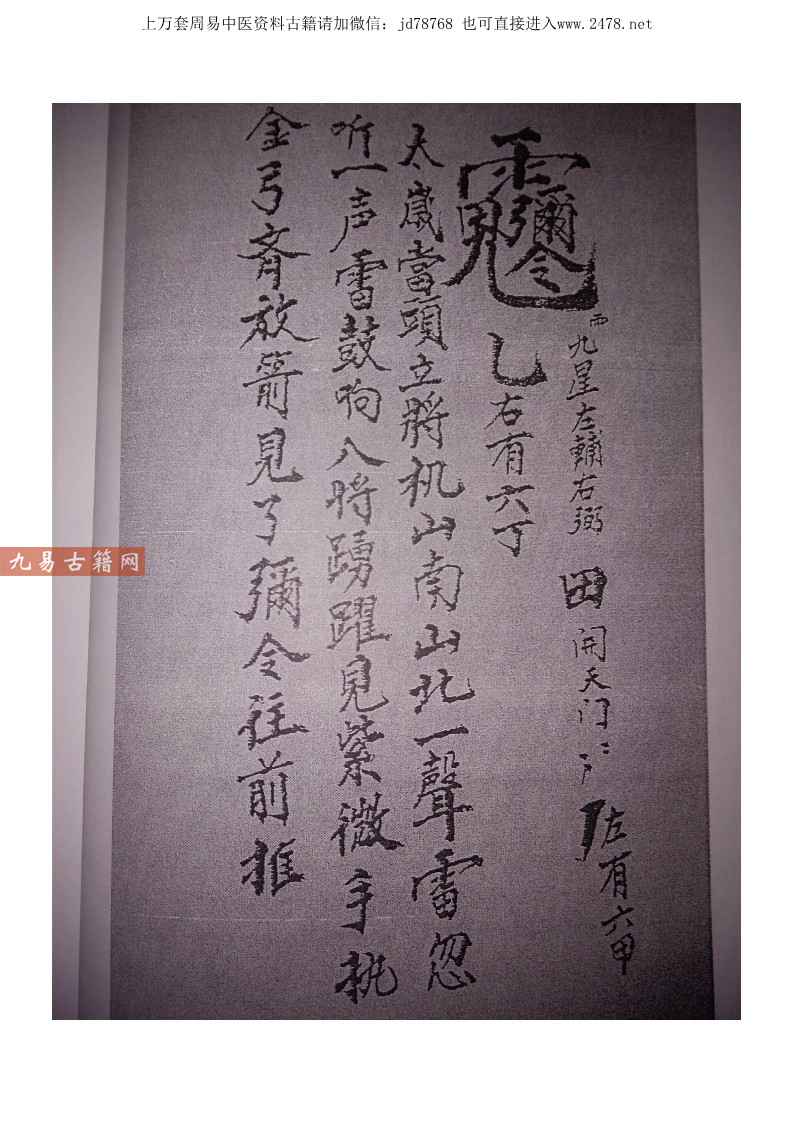 上万套周易中医资料古籍请加微信：jd78768 也可直接进入www.2478.net
九星左輔右弼 田 開天门 左有六甲
彌令 乚 右有六丁
太歲當頭立將机山南山北一聲雷忽
听一声雷鼓响八將踴躍見紫微手执
金弓齊放箭見了彌令往前推
九易古籍网